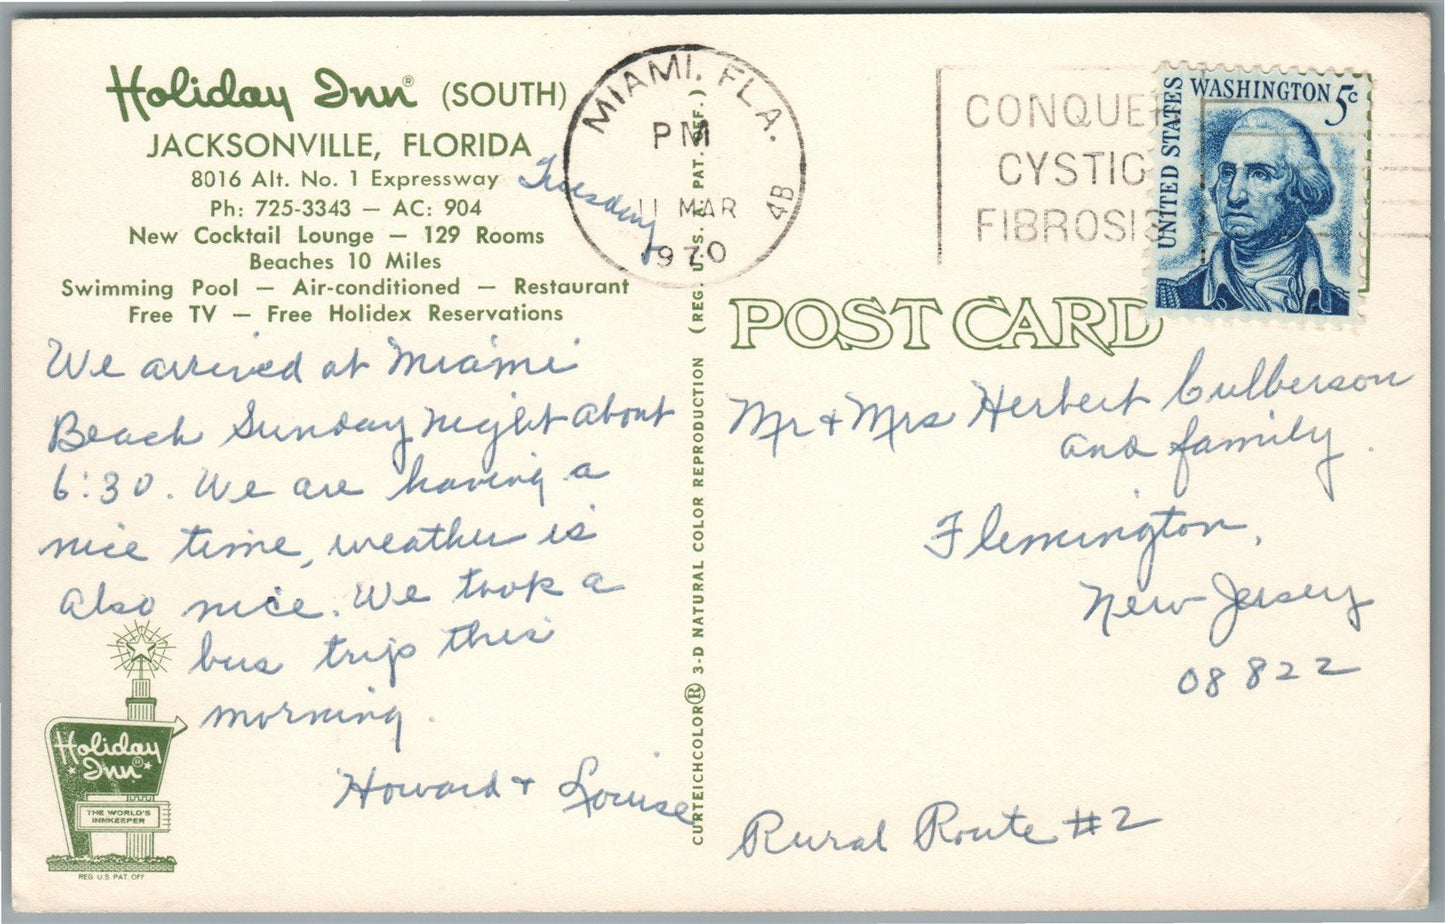 Holiday Inn® (SOUTH)
JACKSONVILLE, FLORIDA
8016 Alt. No. 1 Expressway
Ph: 725-3343 — AC: 904
New Cocktail Lounge — 129 Rooms
Beaches 10 Miles
Swimming Pool — Air-conditioned — Restaurant
Free TV — Free Holidex Reservations
Tuesday
We arrived at Miami
Beach Sunday night about
6:30. We are having a
nice time, weather is
also nice. We took a
bus trip this
morning.
Howard & Louise
Holiday
Inn®
THE WORLD'S
INNKEEPER
REG. U.S. PAT. OFF
CURTEICHCOLOR® 3-D NATURAL COLOR REPRODUCTION (REG. U.S.A. PAT. OFF.)
MIAMI, FLA.
PM
11 MAR
1970
4B
CONQUE
CYSTIC
FIBROSIS
UNITED STATES
WASHINGTON 5c
POST CARD
Mr & Mrs Herbert Culberson
and family.
Flemington,
New Jersey
08822
Rural Route #2